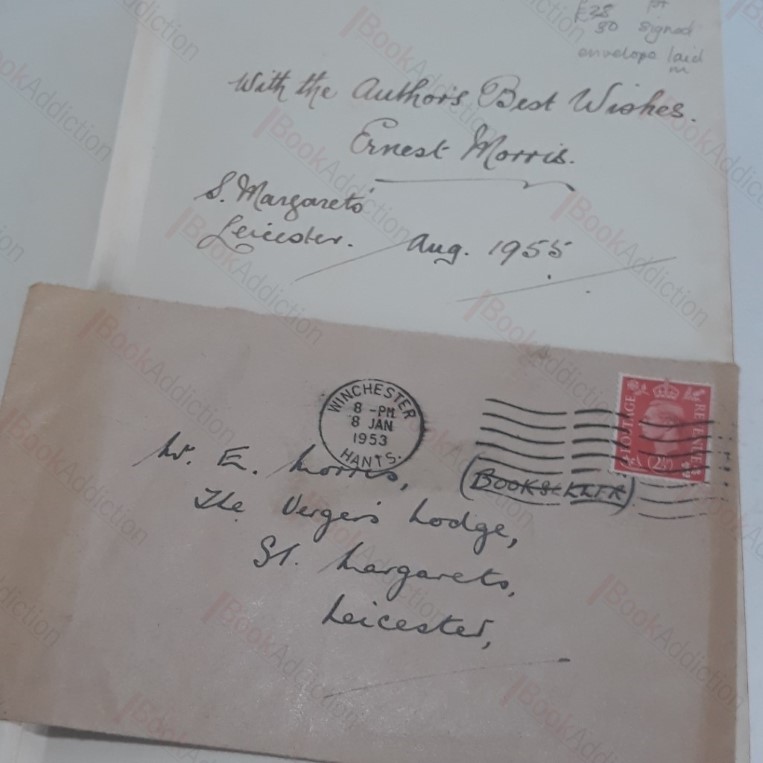 £38 pt
30 signed
envelope laid
in
With the Author's Best Wishes.
Ernest Morris.
S. Margarets
Leicester. Aug. 1955
WINCHESTER
8 - PM
8 JAN
1953
HANTS.
POSTAGE
REVENUE
2½
(BOOKSELLER)
Mr. E. Morris,
The Verger's Lodge,
St. Margarets,
Leicester,
BookAddiction